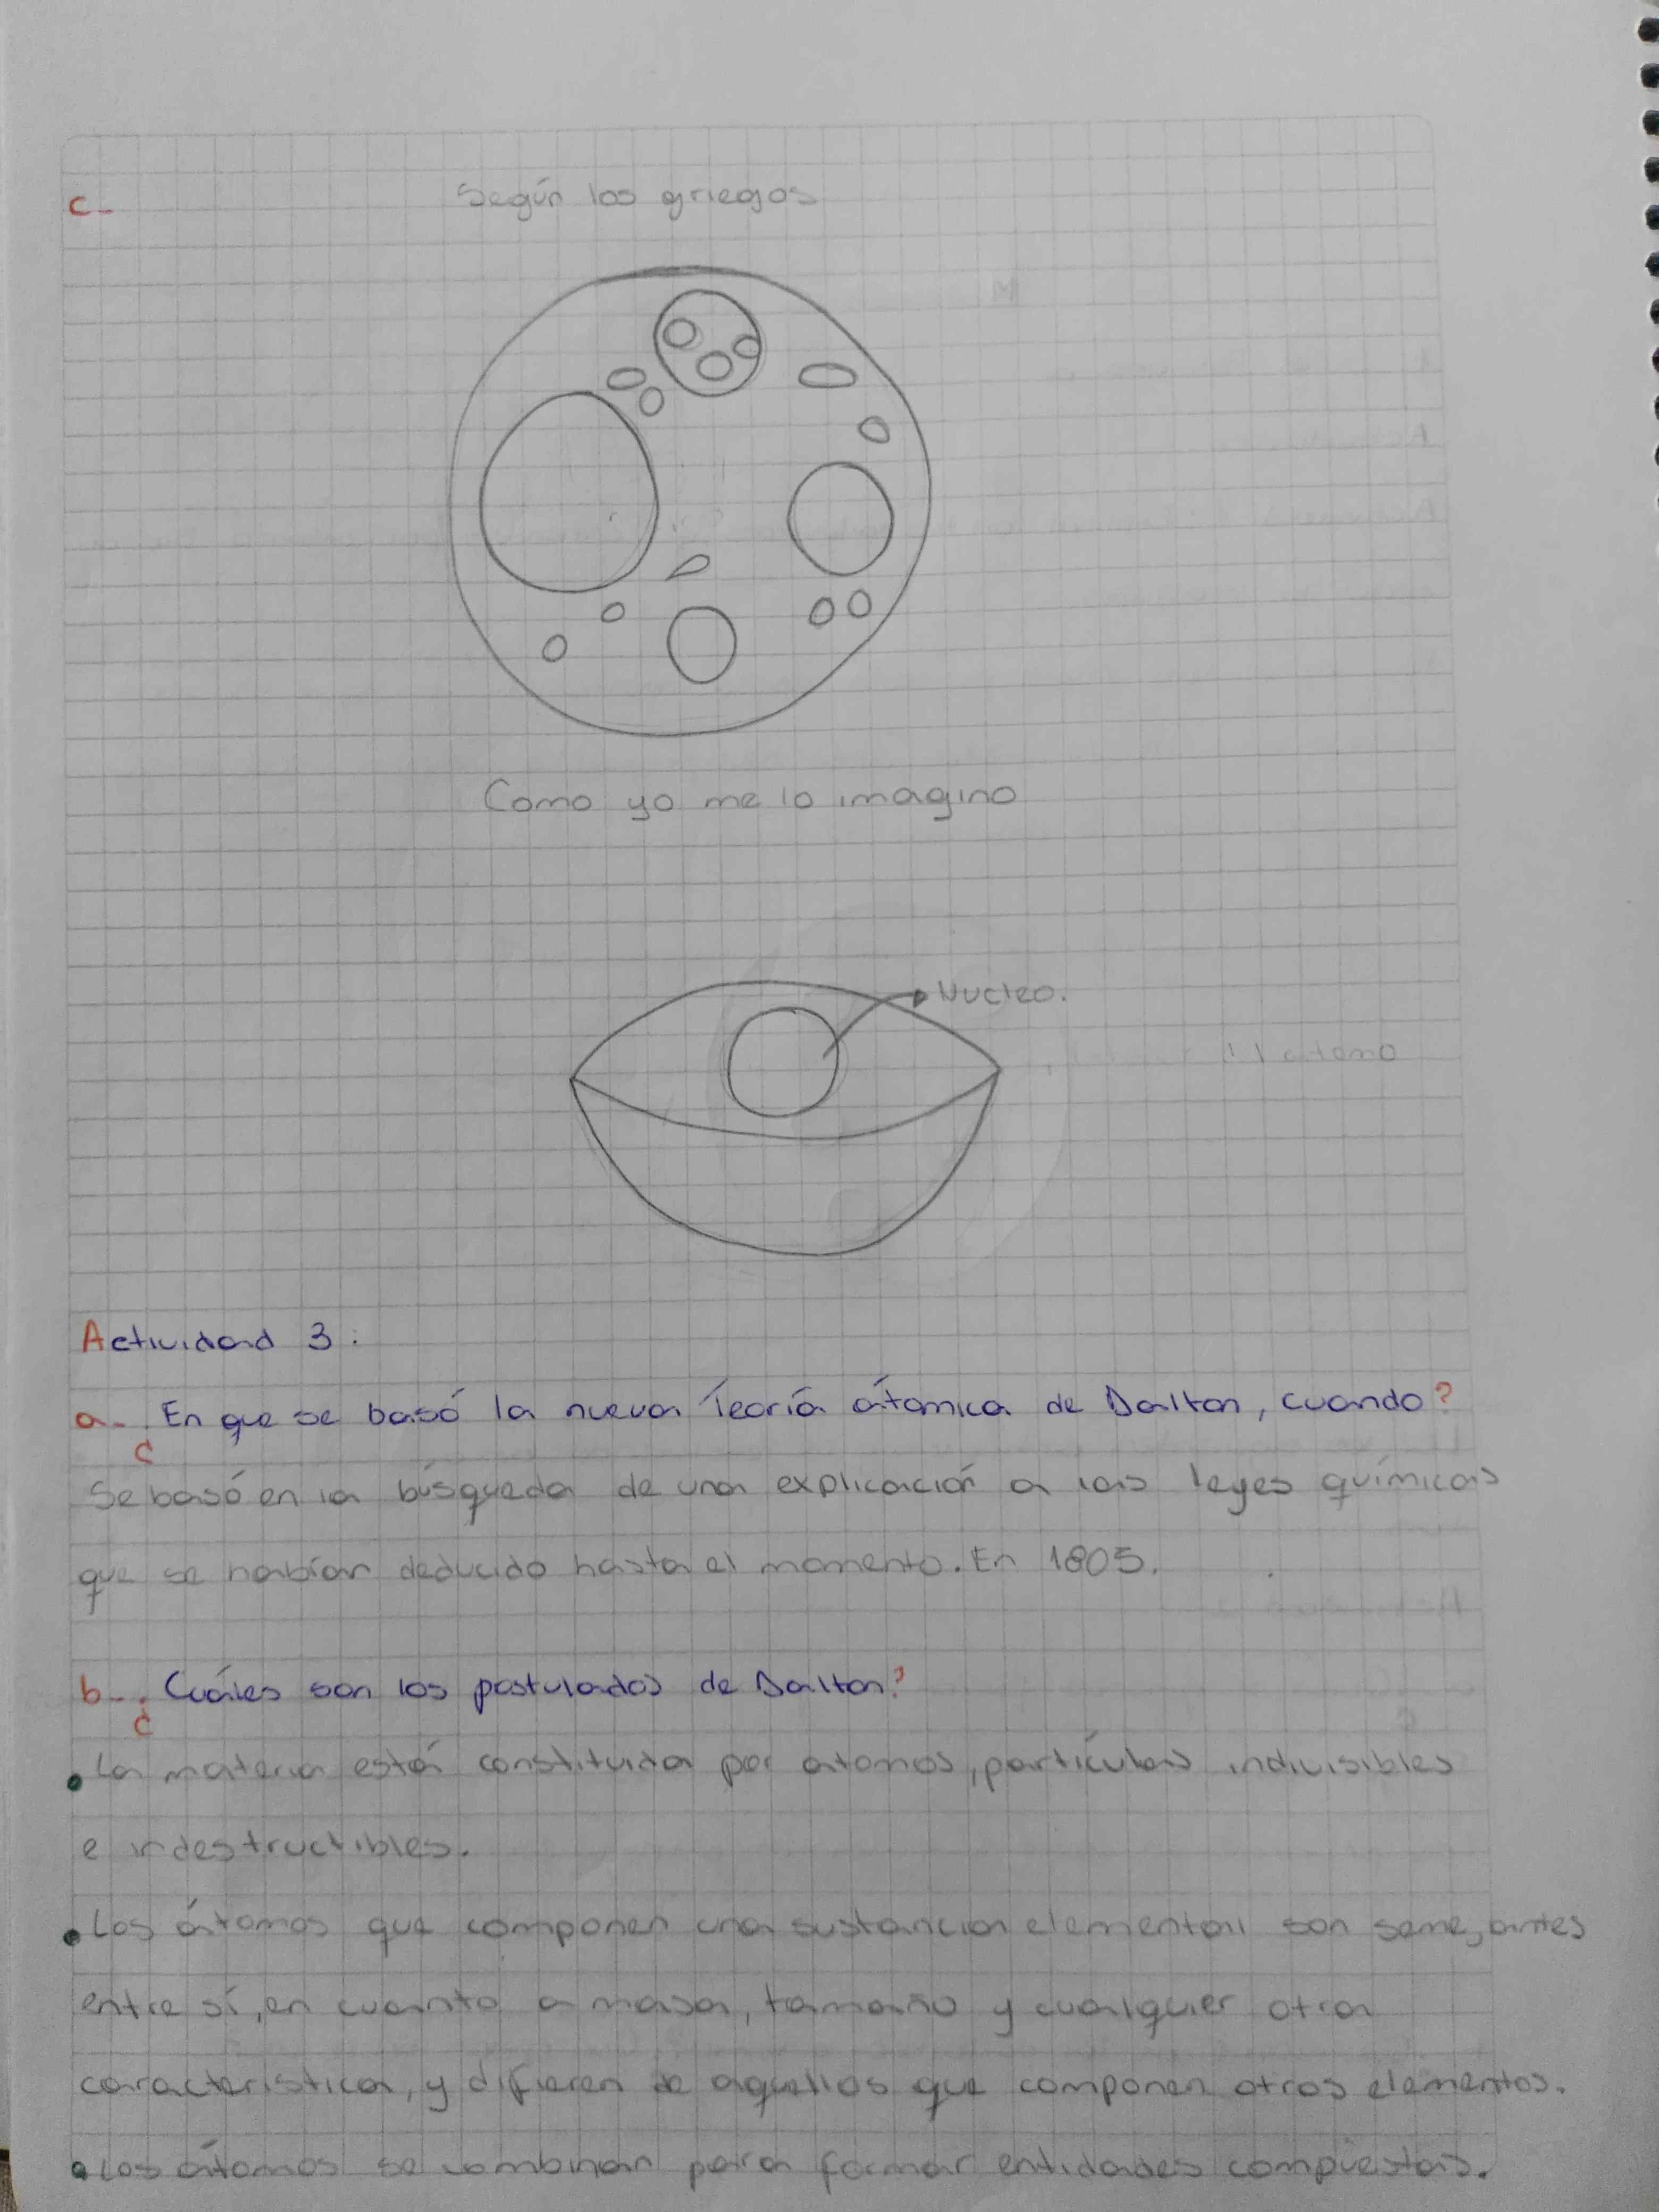 c-
Según los griegos
Como yo me lo imagino
Nucleo.
átomo
Actividad 3:
a- ¿En que se basó la nueva Teoría átomica de Dalton, cuando?
Se basó en la búsqueda de una explicación a las leyes químicas
que se habían deducido hasta el momento. En 1805.
b- ¿Cuáles son los postulados de Dalton?
• La materia está constituida por átomos, partículas indivisibles
e indestructibles.
• Los átomos que componen una sustancia elemental son semejantes
entre sí, en cuanto a masa, tamaño y cualquier otra
caracteristica, y difieren de aquellos que componen otros elementos.
• Los átomos se combinan para formar entidades compuestas.